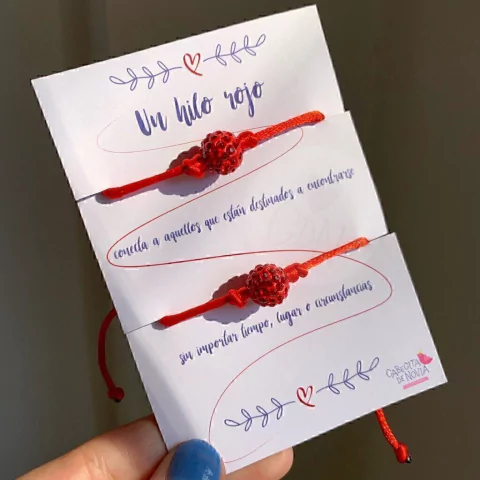 Un hilo rojo
conecta a aquellos que están destinados a encontrarse
sin importar tiempo, lugar o circunstancias
CABECITA
DE NOVIA